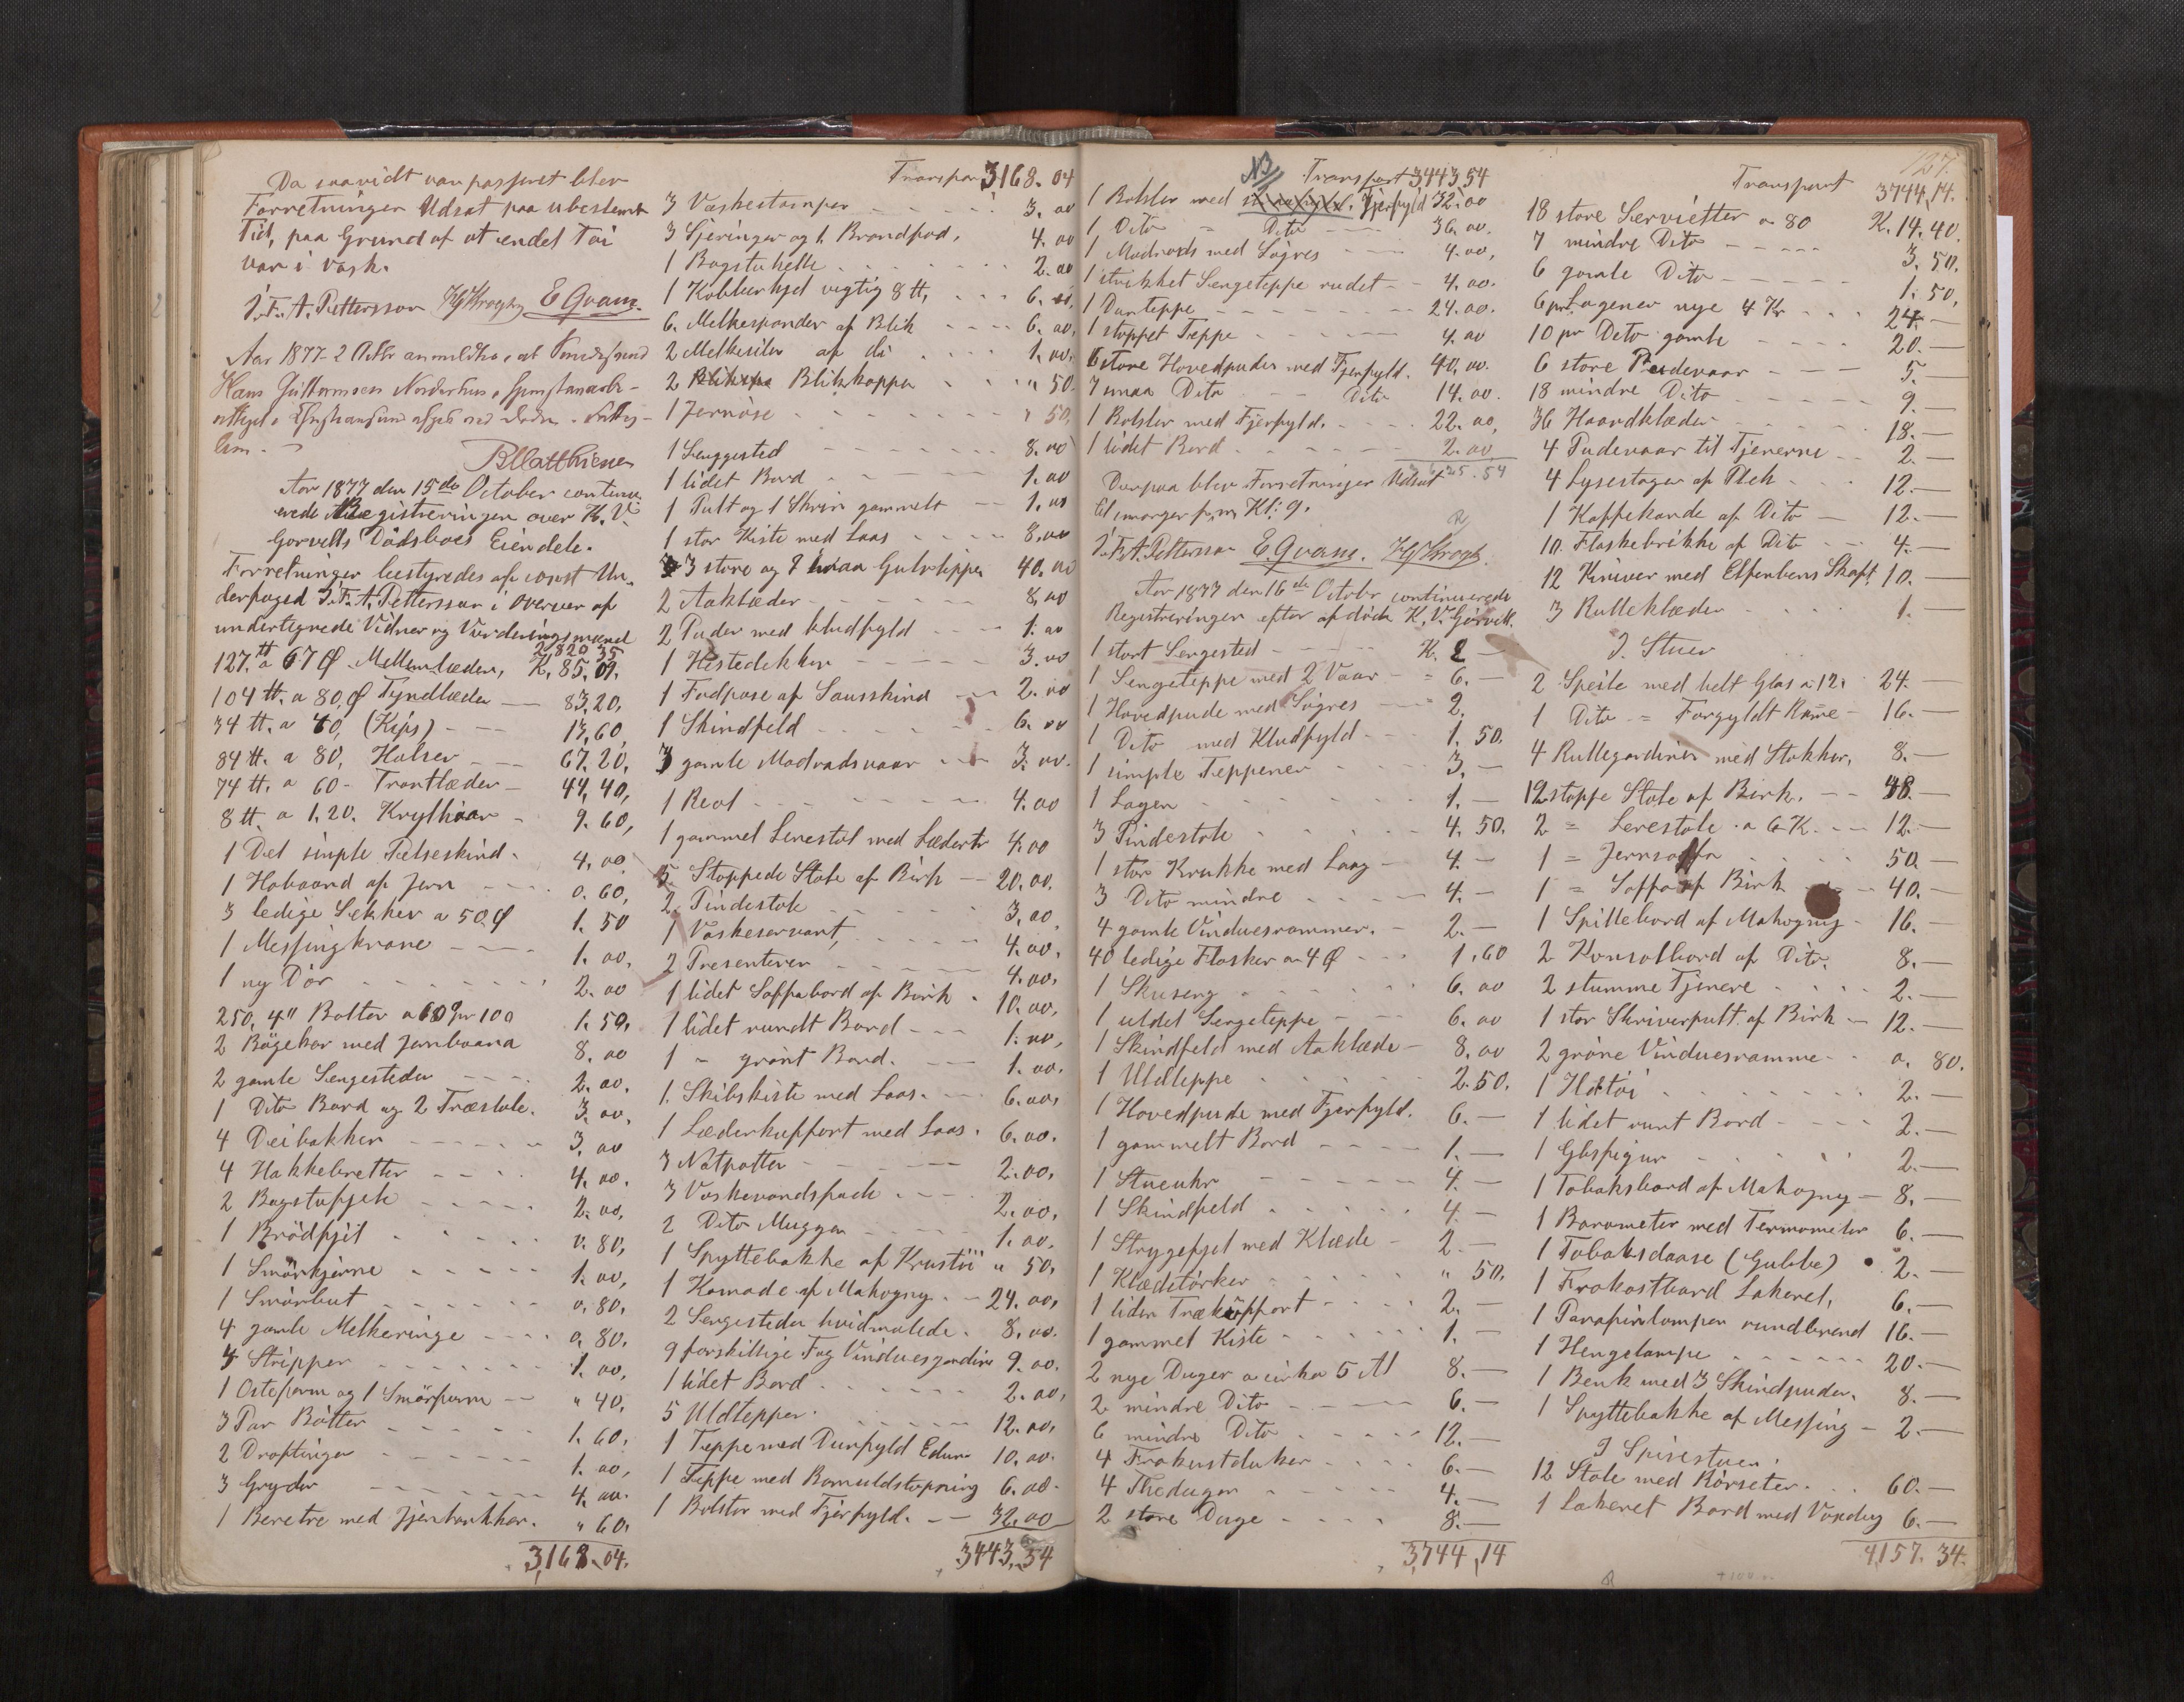 Da saavidt var passeret blev
Forretningen Udsat paa ubestemt
Tid, paa Grund af at endel Töi
var i Vask.
J. F. A. Pettersson HJKrogh E Qvam.
Aar 1877 2 Octbr anmeldtes, at
Hans Guttormsen
P Matthiesen
Aar 1877 den 15de October contin-
erede Registreringen over K. V.
Gorvells Dödsboes Eiendele.
Forretningen bestyredes af const Un-
derfoged J. F. A. Pettersson i Overvær af
undertegnede Vidner og Vurderingsmænd
2,820 35
127 ℔ a 67 Ø Mellemlæder, K. 85,09.
104 ℔. a 80 Ø Tyndlæder — 83,20,
34 ℔. a 40, (Kips) — 13,60,
84 ℔. a 80, Halser — 67.20,
74 ℔. a 60 - Tranlæder — 44,40,
8 ℔. a 1.20. Krylhaar - 9.60,
1 Del simple Pelseskind - 4.00
1 Hobaand af Jern - 0.60,
3 ledige Sækker a 50 Ø 1.50
1 Messingkrane — 1.00,
1 ny Dör 2.00
250, 4" Bolter a 60 Ø pr 100 1.50,
2 Bögekar med Jernbaand 8.00
2 gamle Sengesteder 2.00.
1 Dito Bord og 2 Træstole. 3.00,
4 Deibakker 3.00
4 Hakkebretter 4.00.
2 Bagstefjele 2.00,
1 Brödfjel 0.80,
1 Smörkjerne 1.00,
1 Smörbut 0.80,
4 gamle Melkeringe 0.80.
4 Stripper 1.00,
1 Osteform og 1 Smörform — " 40,
3 Par Bötter 1.60,
2 1.00,
3 Gryder 4.00.
1 Beretre med Jjernbankker. " 60,
3,168.04.
Transport 3,168.04
3 Vaskestamper 3.00
3 Sjeringer og 1 Brandfad, 4.00
1 Bagstehelle 2.00
1 Kobberkjel vegtig 8 ℔, 6.
6. Melkespander af Blik 6.00,
2 Melkesiler af di 1.00,
2 Blikkopper " 50.
1 Jernöse " 50,
1 Senggested 8.00
1 lidet Bord 1.00
1 Pult og 1 Skrin gammelt 1.00
1 stor Kiste med Laas 8.00
3 store og 2 smaa Gulvtepper 40.00
2 Aaklæder 8.00
2 Puder med kludfyld 1.00
1 Hestedekken 3.00
1 Fodpose af Sauskind 2.00
1 Skindfeld 6.00
3 gamle Madradsvaar 3.00.
1 Reol 4.00
1 gammel Lenestol med Lædertr 4.00
5. Stoppede Stole af Birk 20.00.
2 Pindestole 3.00,
1 Vaskeservant, 4.00,
2 Presenteren 4.00,
1 lidet Soffabord af Birk 10.00,
1 lidet rundt Bord 1.00,
1 " grönt Bord. 1.00.
1. Skibskiste med Laas. 6.00,
1 Læderkuffort med Laas. 6.00.
3 Natpotter 2.00,
3 Vaskevandsfade 2.00,
2 Dito Mugger 1.00,
1 Spyttebakke af Krustöi " 50,
1 Komode af Mahogny. 24.00,
2 Sengesteder hvidmalede. 8.00.
9 forskillige Fag Vinduesgardiner 9.00.
1 lidet Bord 2.00,
5 Uldtepper. 12.00,
1 Teppe med Dunfyld Eder 10.00.
1 Teppe med Bomuldstopning 6.00.
1 Bolster med Fjerfyld. 32.00
3443,54
NB Transport 3443 54
1 Bolster med Fjerfyld 32.00
1 Dito " Dito 36.00.
1 Madrads med Sögres 4.00,
1 strikket Sengeteppe rudet 4.00.
1 Dunteppe 24.00.
1 stoppet Teppe 4.00
6 store Hovedpuder med Fjerfyld. 40.00.
7 smaa Dito Dito 14.00.
1 Bolster med Fjerfyld. 22.00,
1 lidet Bord 2.00
3625.54
Derpaa blev Forretningen Udsat
til imorgen f. m. Kl: 9.
J. F. A. Pettersson E. Qvam. HJKrogh.
Aar 1877 den 16de Octobr continuerede
Registreringen efter afdöde K. V. Gorvell.
1 stort Sengested K. 2 —
1 Sengeteppe med 2 Vaar " 6. —
1 Hovedpude med Sögres 2.
1 Dito med Kludfyld 1.50.
1 simple Teppener 3, —
1 Lagen 1. —
3 Pindestole 4.50.
1 stor Krukke med Laag 4. —
3 Dito mindre 4. —
4 gamle Vinduesrammer. 2. —
40 ledige Flasker a 4 Ø 1.60
1 Skuseng 6.00
1 uldet Sengeteppe 6.00
1 Skindfeld med Aaklæde 8.00
1 Uldteppe 2.50.
1 Hovedpude med Fjerfyld. 6. —
1 gammelt Bord 1. —
1 Stueuhr 4. —
1 Skindfeld 4. —
1 Strygefjel med Klæde 2. —
1 Klædetörker " 50,
1 liden Trækuffort 2. —
1 gammel Kiste 1. —
2 nye Duger a cirka 5 Al 8. —
2 mindre Dito 6. —
6 mindre Dito 12. —
4 Frokostduker 6. —
4 Thedugor 4. —
2 store Duge 8. —
3,744,14
127.
Transport 3744,14.
18 store Servietter a 80 K. 14.40.
7 mindre Dito 3.50.
6 gamle Dito 1.50,
6 pr Lagener nye 4 Kr 24 —
10 pr Dito gamle 20. —
6 store Pudevaar 5. —
18 mindre Dito 9. —
36 Haandklæder 18. —
4 Pudevaar til Tjenerne 2. —
4 Lysestager af Plek 12. —
1 Kaffekande af Dito 12. —
10. Flaskebrikke af Dito 4. —
12 Kniver med Elfenbens Skaft 10. —
3 Rulleklæder 1. —
I. Stuen
2 Speile med helt Glas a 12. 24. —
1 Dito " Forgyldt Rame 16. —
4 Rullegardiner med Stokker, 8. —
12 stoppe Stole af Birk. 48. —
2 " Lenestole a 6 K. 12. —
1 " Jernsoffa 50. —
1 " Soffa af Birk 40. —
1 Spillebord af Mahogny 16. —
2 Konsolbord af Dito. 8. —
2 stumme Tjenere 2. —
1 stor Skriverpult af Birk 12. —
2 gröne Vinduesramme 0. 80.
1 Ildtöi 2. —
1 lidet runt Bord 2. —
1 Glasfigur 2. —
1 Tobaksbord af Mahogny 8. —
1 Barometer med Termometer 6. —
1 Tobaksdaase (Gubbe) 2. —
1 Frokostbord Lakeret, 6. —
1 Parafinlampen rundbrend 16. —
1 Hengelampe 20. —
1 Benk med 3 Skindpuder. 8. —
1 Spyttebakke af Messing 2. —
I Spisestuen.
12 Stole med Rörseter. 60. —
1 Lakeret Bord med Voxdug 6. —
4,157. 34.